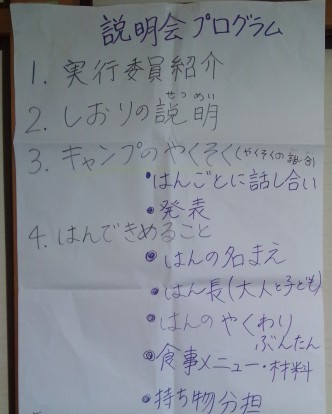 説明会プログラム
1. 実行委員紹介
せつめい
2. しおりの説明
3. キャンプのやくそく(やくそくの
・はんごとに話し合い
・発表
4. はんできめること
・はんの名まえ
・はん長(大人と子ども)
・はんのやくわり
ぶんたん
・食事メニュー・材料
・持ち物分担